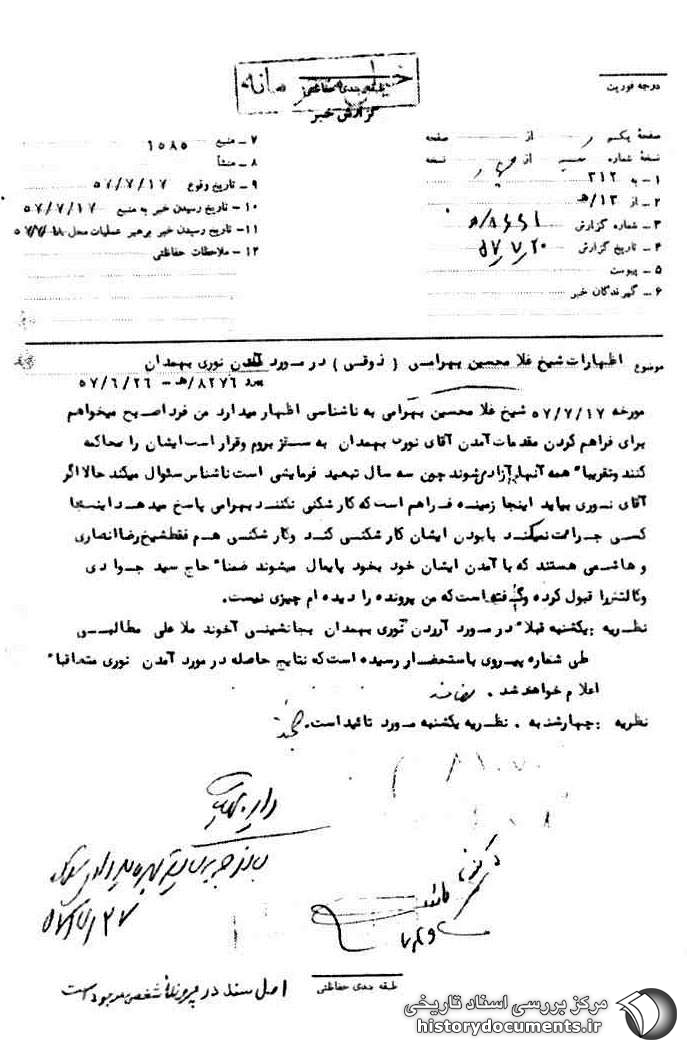 خیلی محرمانه
طبقه بندی حفاظتی
گزارش خبر
درجه فوریت
صفحهٔ یکم از صفحه
نسخهٔ شماره از نسخه
۱ – به ۳۱۲
۲ – از ۱۳/هـ
۳ – شماره گزارش
۴ – تاریخ گزارش ۵۷/۷/۲۰
۵ – پیوست
۶ – گیرندگان خبر
۷ – منبع ۱۵۸۵
۸ – منشأ
۹ – تاریخ وقوع ۵۷/۷/۱۷
۱۰ – تاریخ رسیدن خبر به منبع ۵۷/۷/۱۷
۱۱ – تاریخ رسیدن خبر برهبر عملیات محل ۵۷/۷/۱۸
۱۲ – ملاحظات حفاظتی
موضوع اظهارات شیخ غلامحسین بهرامی (ذوقی) در مورد آمدن نوری بهمدان
پیرو ۸۲۷۶/هـ – ۵۷/۶/۲۶
مورخه ۵۷/۷/۱۷ شیخ غلامحسین بهرامی به ناشناسی اظهار میدارد من فردا صبح میخواهم
برای فراهم کردن مقدمات آمدن آقای نوری بهمدان به سقز بروم وقرار است ایشان را محاکمه
کنند وتقریبا" همه آنها آزاد میشوند چون سه سال تبعید فرمایشی است ناشناس سئوال میکند حالا اگر
آقای نوری بیاید اینجا زمینه فراهم است که کار شکنی نکنند بهرامی پاسخ میدهد اینجا
کسی جراءت نمیکند بابودن ایشان کار شکنی کند وکار شکنی هم فقط شیخ رضا انصاری
و هاشمی هستند که با آمدن ایشان خود بخود پایمال میشوند ضمنا" حاج سید جوادی
وکالتش را قبول کرده وگفته است که من پرونده را دیده ام چیزی نیست.
نظریه : یکشنبه قبلا" در مورد آوردن نوری بهمدان بجانشینی آخوند ملا علی
طی شماره پیروی باستحضار رسیده است که نتایج حاصله در مورد آمدن نوری متعاقبا"
اعلام خواهد شد .
نظریه : چهارشنبه . نظریه یکشنبه مورد تائید است.
۵۷/۷/۲۷
طبقه بندی حفاظتی
اصل سند در پرونده شخصی موجود است
مرکز بررسی اسناد تاریخی
historydocuments.ir